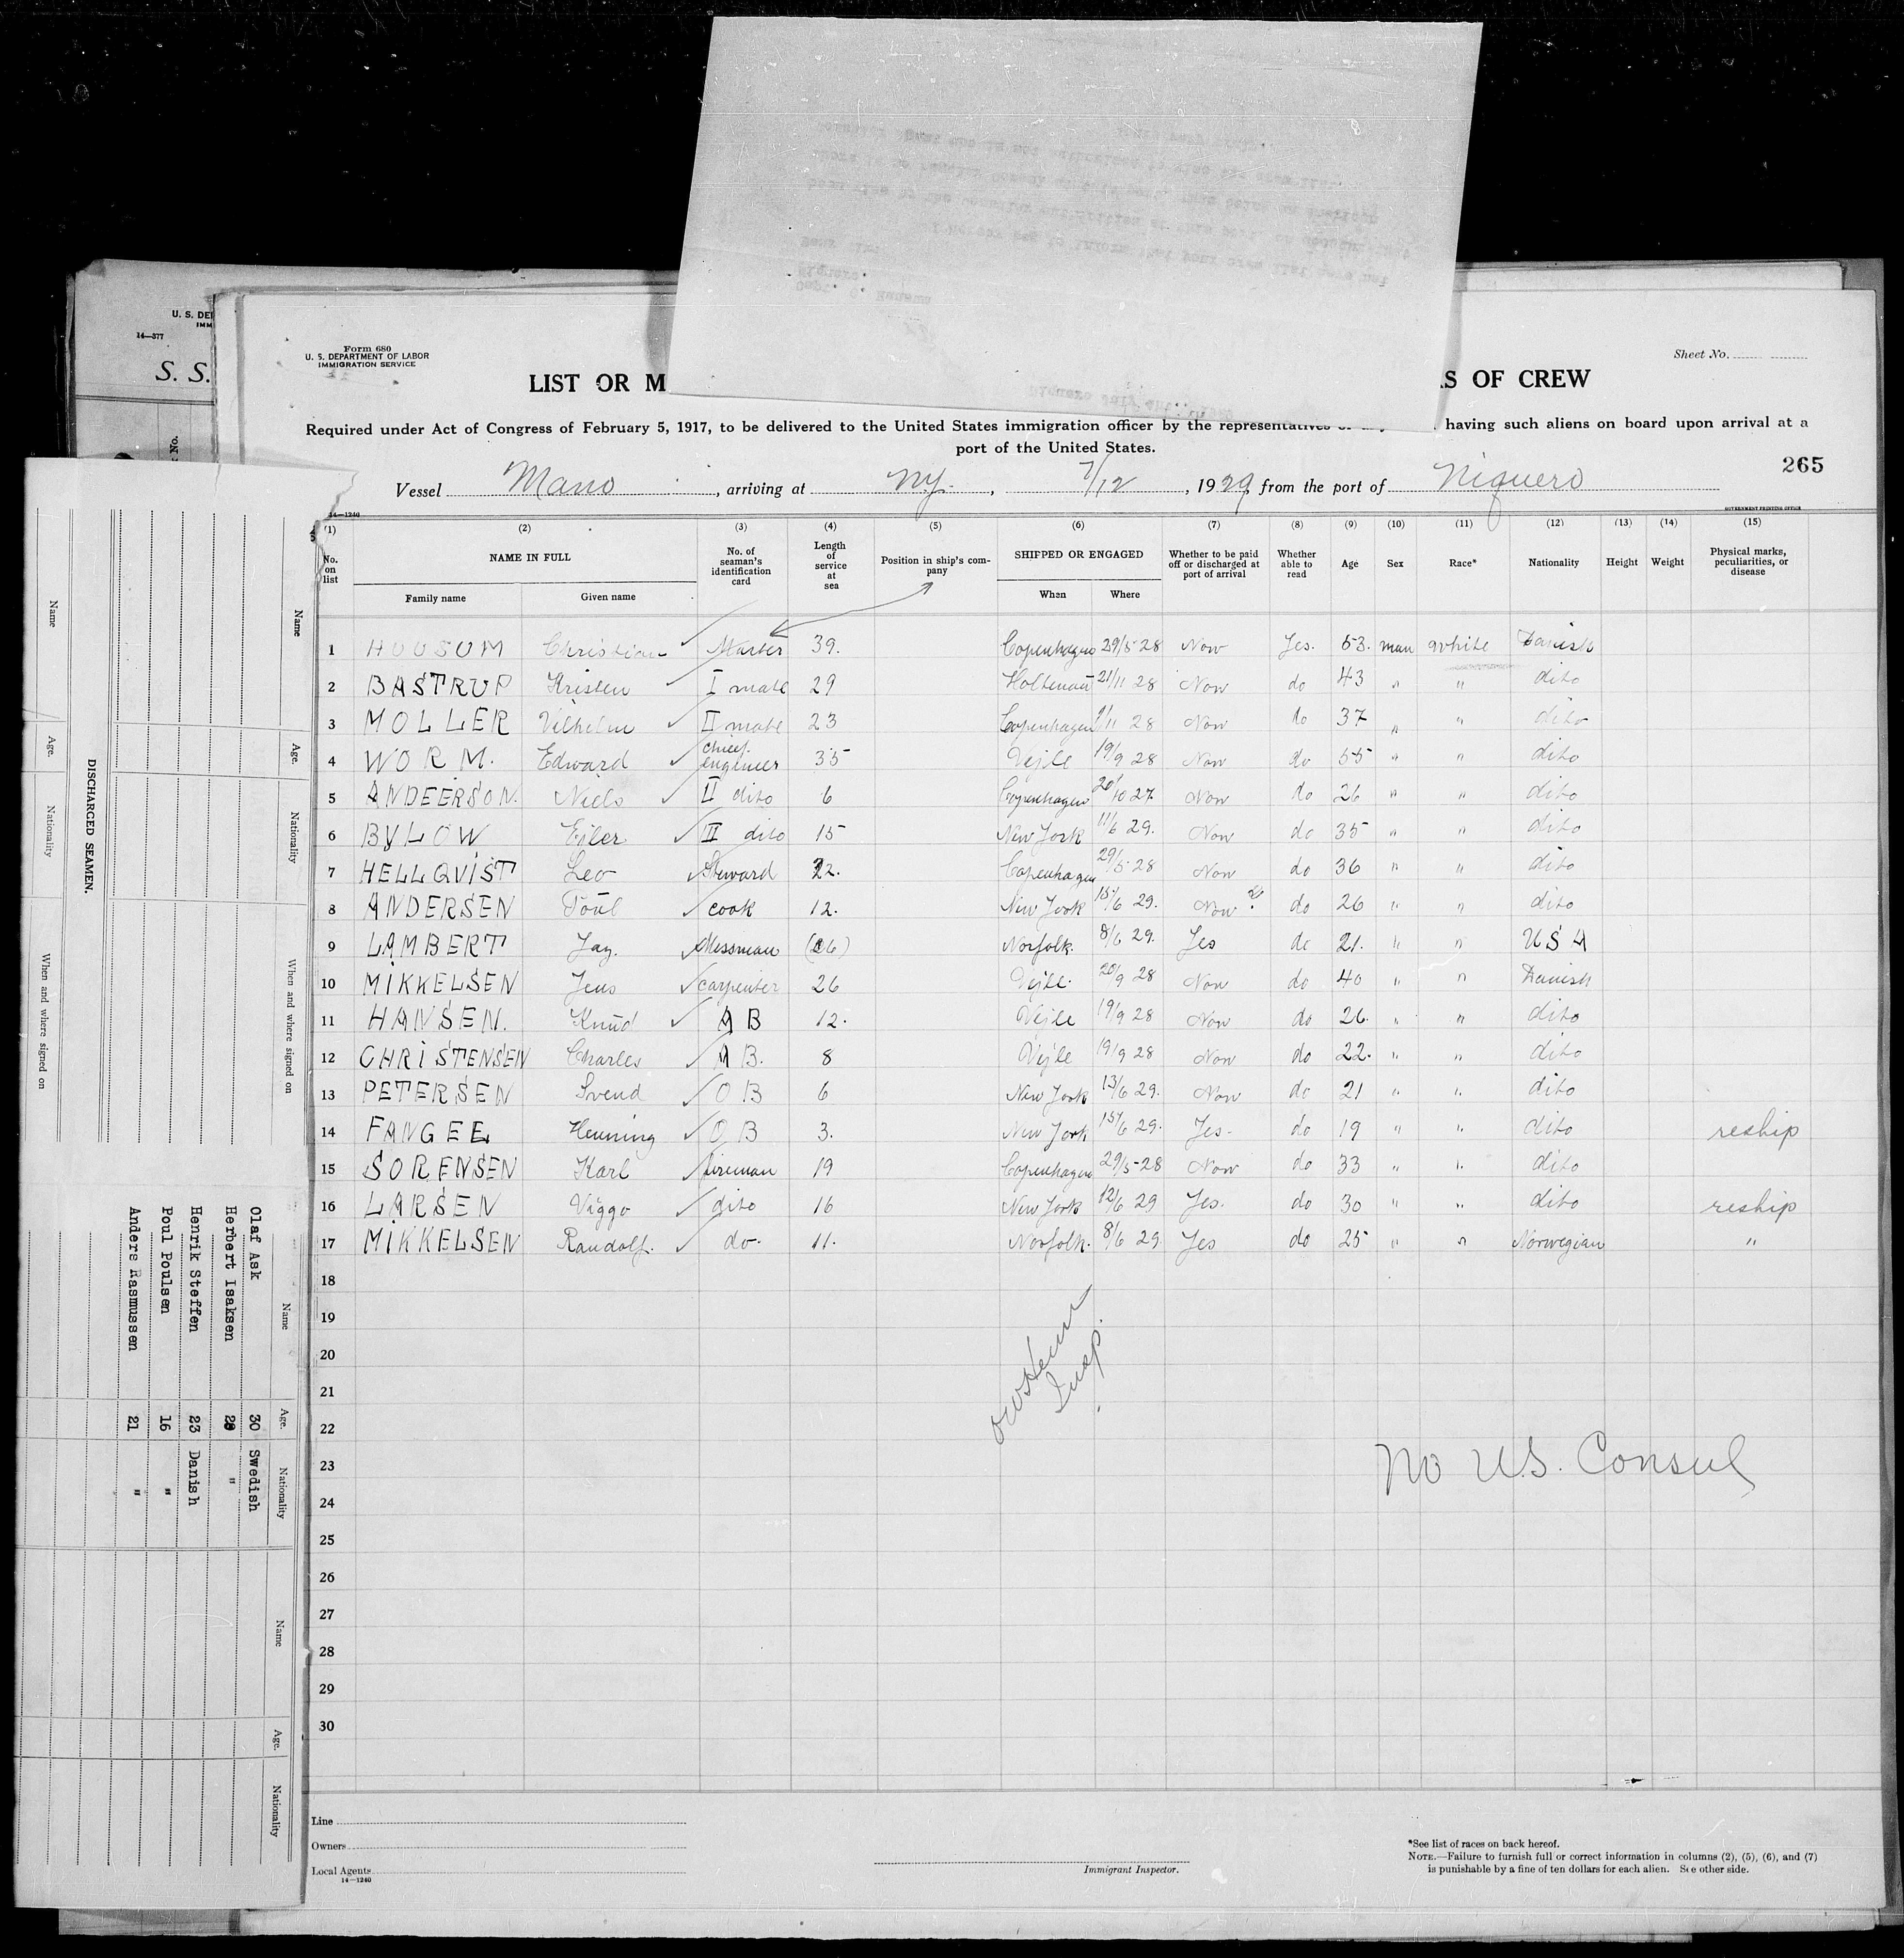 U. S. DEP
IMM
14—377
S. S.
No.
Form 680
U. S. DEPARTMENT OF LABOR
IMMIGRATION SERVICE
Sheet No.
LIST OR M
S OF CREW
Required under Act of Congress of February 5, 1917, to be delivered to the United States immigration officer by the representatives having such aliens on board upon arrival at a
port of the United States.
265
Vessel Mano, arriving at N.Y., 7/12, 1929, from the port of Niquero
14—1240
GOVERNMENT PRINTING OFFICE
(1) (2) (3) (4) (5) (6) (7) (8) (9) (10) (11) (12) (13) (14) (15)
No. on list NAME IN FULL No. of seaman's identification card Length of service at sea Position in ship's company SHIPPED OR ENGAGED Whether to be paid off or discharged at port of arrival Whether able to read Age Sex Race* Nationality Height Weight Physical marks, peculiarities, or disease
Family name Given name When Where
1 HUUSOM Christian Master 39. Copenhagen 29/5-28 Now Yes. 53. man white Danish
2 BASTRUP Kristen I mate 29 Holtenau 21/11 28 Now do 43 " " dito
3 MOLLER Vilhelm II mate 23 Copenhagen 1/11 28 Now do 37 " " dito
4 WORM. Edward chief engineer 35 Vejle 19/9 28 Now do 55 " " dito
5 ANDEERSON. Niels II dito 6 Copenhagen 20/10 27 Now do 26 " " dito
6 BYLOW Ejler III dito 15 New York 11/6 29. Now do 35 " " dito
7 HELLQVIST Leo Steward 22. Copenhagen 29/5-28 Now do 36 " " dito
8 ANDERSEN Poul cook 12. New York 15/6 29. Now do 26 " " dito
9 LAMBERT Jay. Messman Norfolk. 8/6 29. Yes do 21. " " USA
10 MIKKELSEN Jens carpenter 26 Vejle. 20/9 28 Now do 40 " " Danish
11 HANSEN. Knud AB 12. Vejle 19/9 28 Now do 26. " " dito
12 CHRISTENSEN Charles AB. 8 Vejle 19/9 28 Now do 22. " " dito
13 PETERSEN Svend OB 6 New York 13/6 29. Now do 21 " " dito
14 FANGEE Henning OB 3. New York 15/6 29. Yes- do 19 " " dito reship
15 SORENSEN Karl fireman 19 Copenhagen 29/5-28 Now do 33 " " dito
16 LARSEN Viggo dito 16 New York 12/6 29 Yes. do 30 " " dito reship
17 MIKKELSEN Randolf. do. 11. Norfolk. 8/6 29. Yes do 25 " " Norwegian "
18
19
20
21
22
23
24
25
26
27
28
29
30
Insp.
No U.S. Consul
Line
Owners
Local Agents
14—1240
Immigrant Inspector.
*See list of races on back hereof.
NOTE.—Failure to furnish full or correct information in columns (2), (5), (6), and (7)
is punishable by a fine of ten dollars for each alien. See other side.
DISCHARGED SEAMEN.
Name Age. Nationality When and where signed on
Name Age. Nationality When and where signed on
Name Age. Nationality
Olaf Ask 30 Swedish
Herbert Isaksen "
Henrik Steffen 23 Danish
Poul Poulsen 16 "
Anders Rasmussen 21 "
Name Age. Nationality